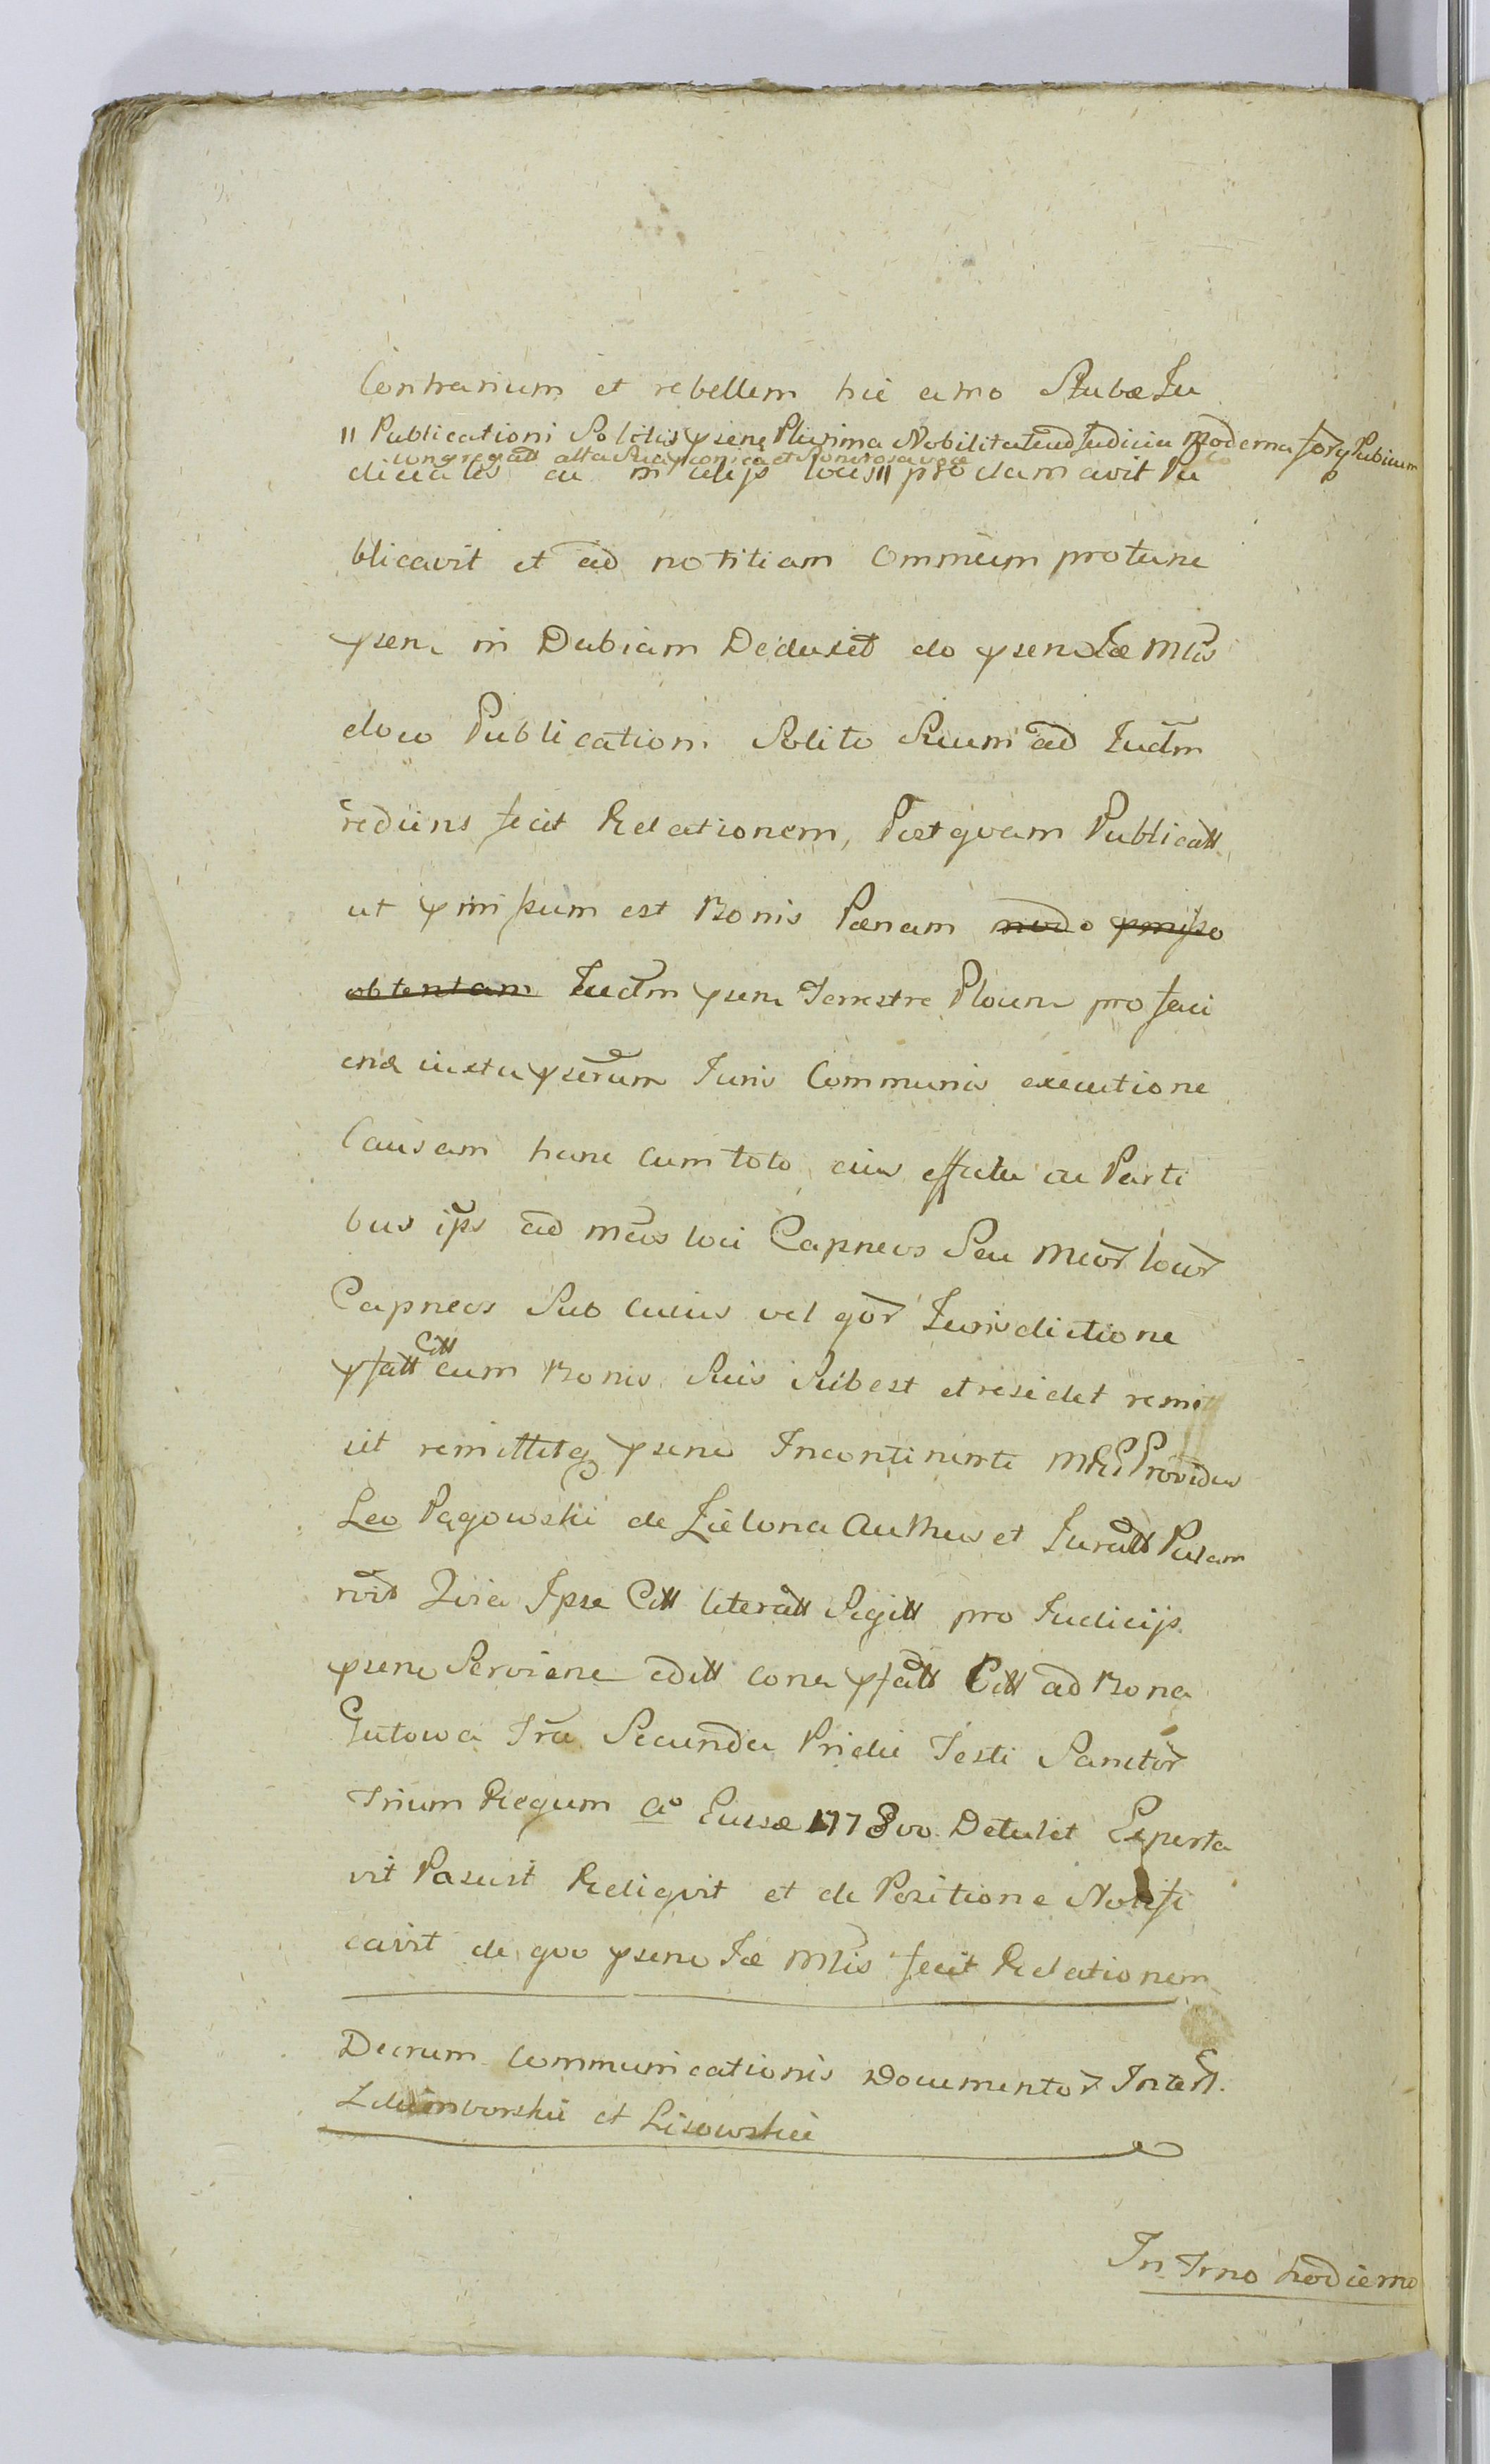 Contrarium et rebellem hic circo Stubæ Iu
" Publicationi Solitis psene Plurima Nobilitate ad Iudicia moderna fory Pubicum
congregatt alta Suaq conica et Sonorosa voce
diciales ac in alijs locis " proclamavit Pu
blicavit et ad notitiam Omnium pro tunc
psen in Dubiam Deduxit do psen Iæ Mlis
eloco Publication Solito Suum ad Iudm
rediens fecit Relationem, Postqvam Publicatt
ut pmissum est Bonis Pœnam modo pmisso
obtentam Iudm psens Terrestre Plocen pro faci
enda iuxta pserum Iuris Communis executione
Causam hanc cum toto eius effectu ac Parti
bus ips ad mcios loci Capneos Seu Mcior locor
Capneos Sub cuius vel qor Iurisdictione
pfatt Citt cum Bonis Suis Subest et residet remi
sit remittitq psenc Incontinenti Mrl Providus
Leo Pągowski de Zielona Authus et Iuratt Palam
rvit Qvia Ipse Citt literatt Sigitt pro Iudicijs
psenc Serviene editt cona pfatt Citt ad Bona
Gutowa Fria Secunda Pridie Festi Sanctor
Trium Regum Ao Eiusæ 1778vo Detulit Exporta
vit Posuit Reliqvit et de Positione Notifi
cavit de qvo psenc Iæ Mlis fecit Relationem
Decrum Communicationis Documentor Inter
et Lisowskie
In Trno hodierno